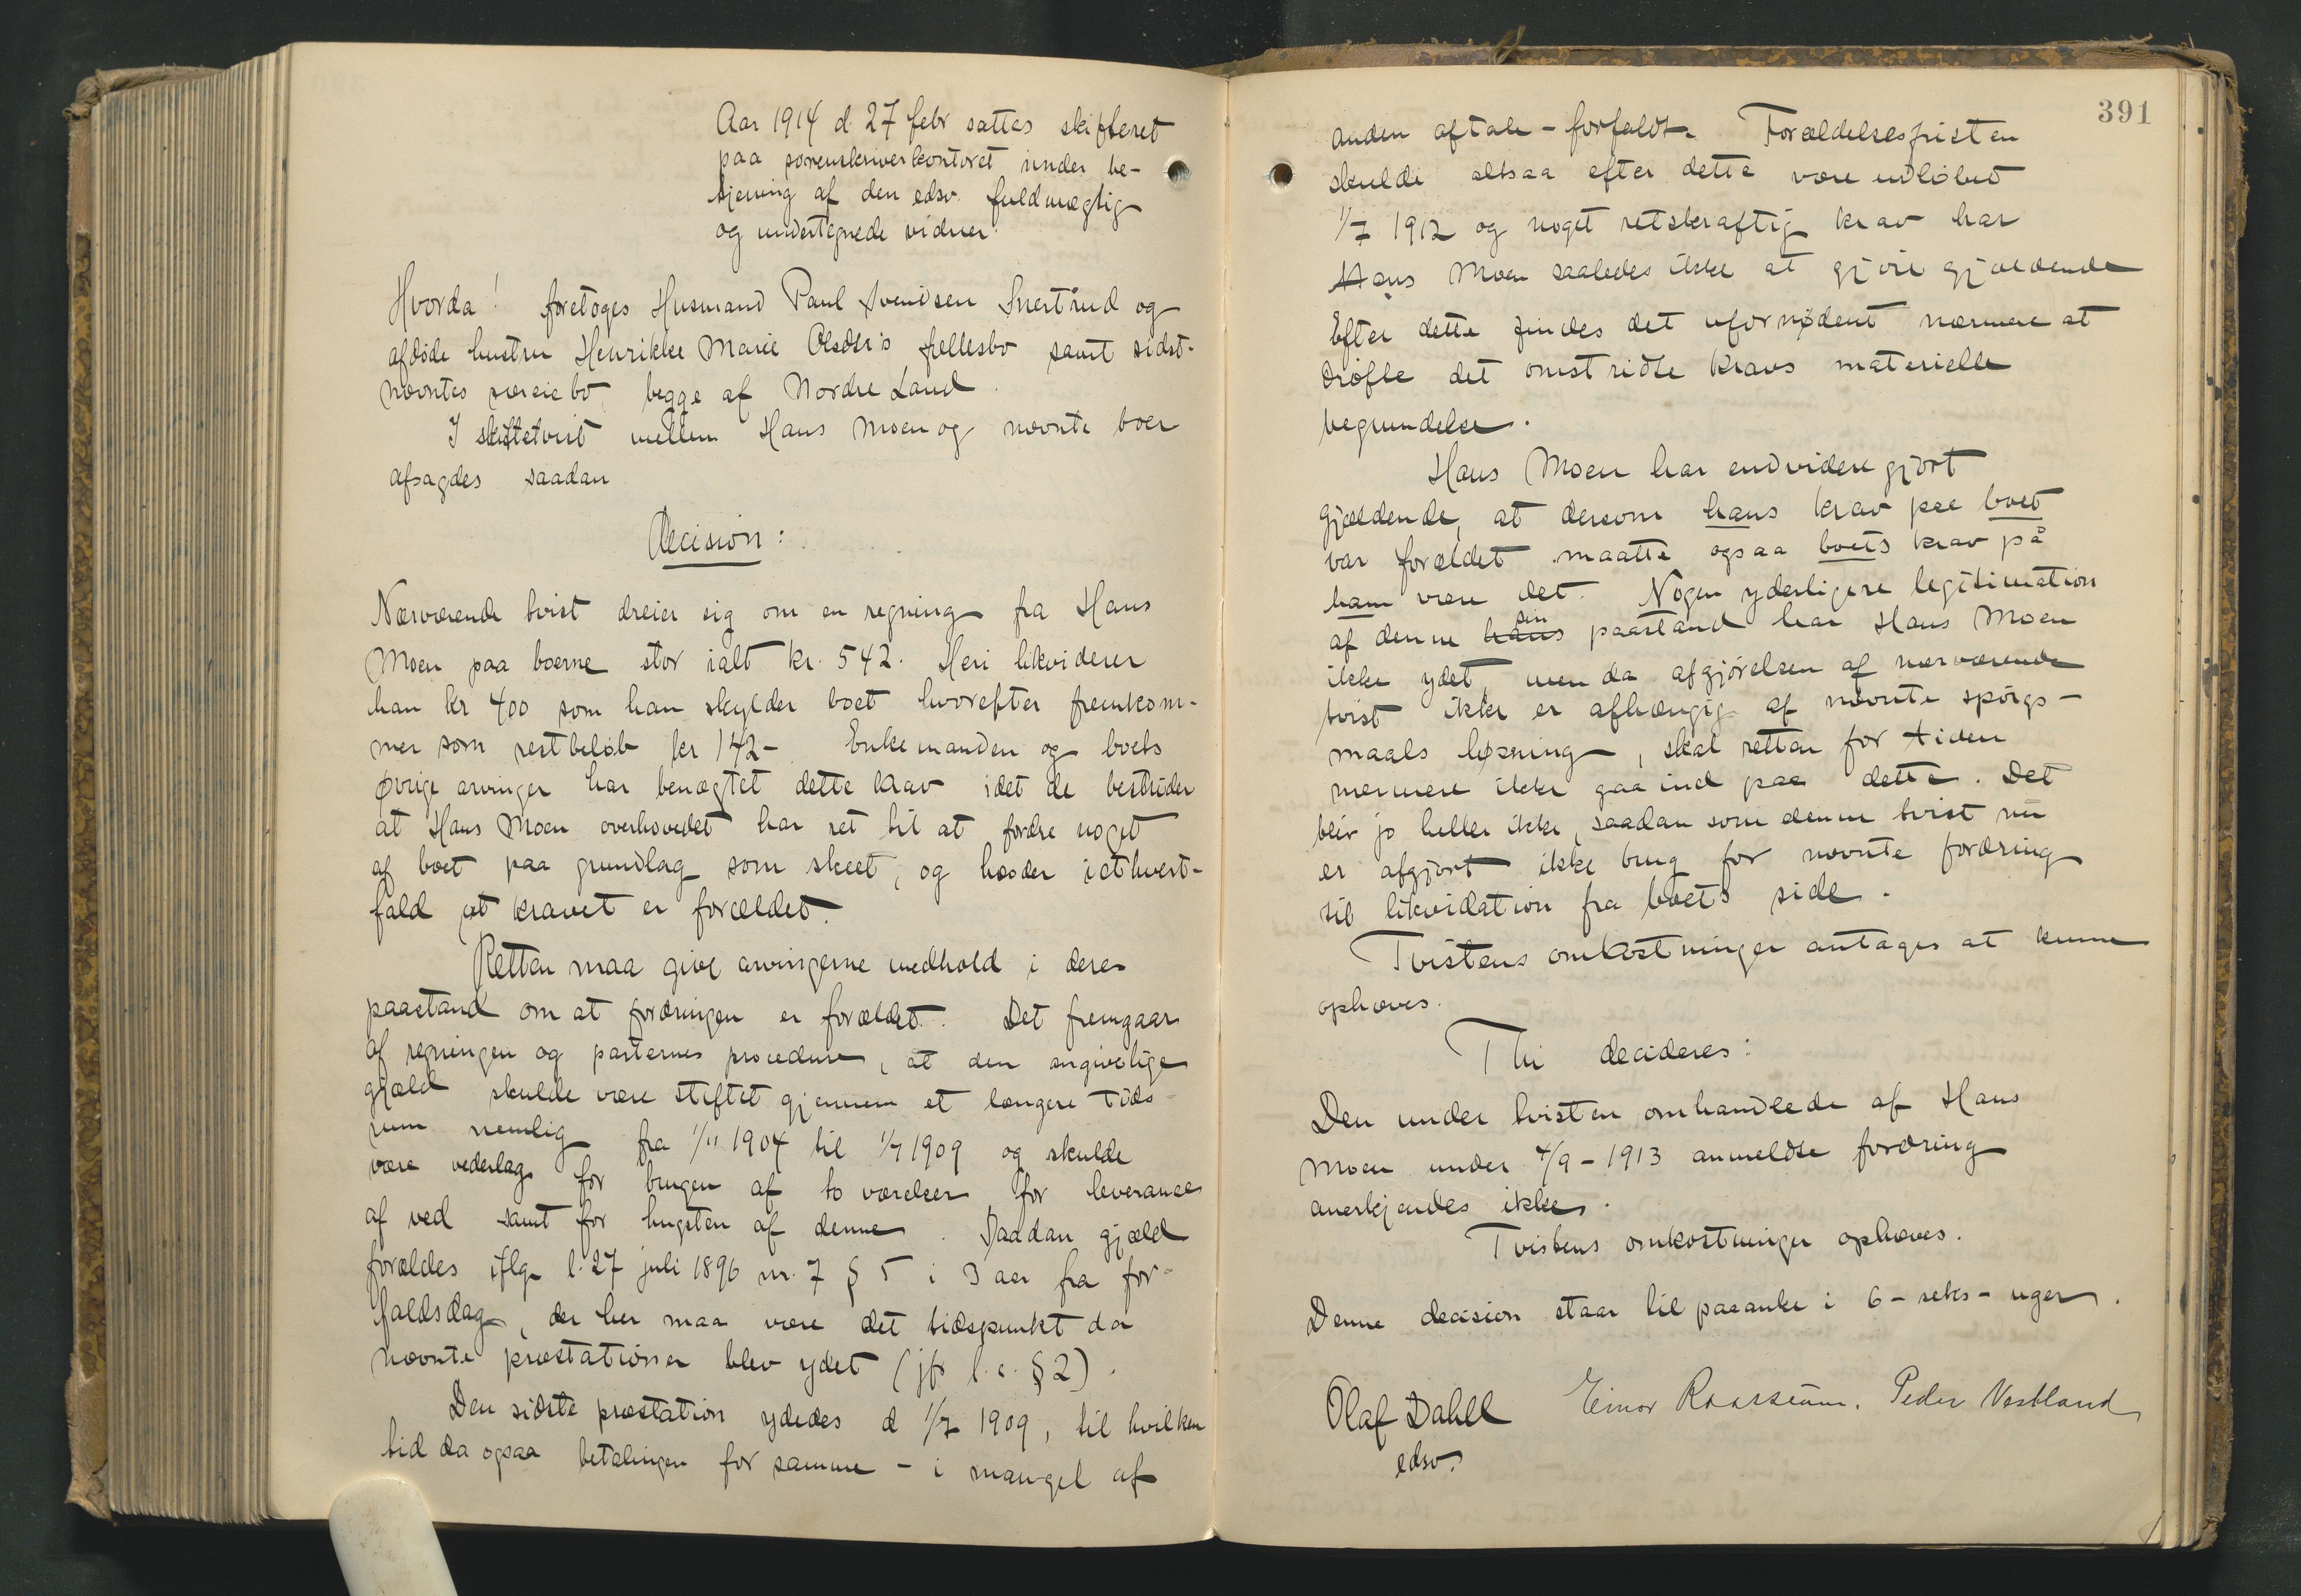 Aar 1914 d. 27 febr sattes skifteret
paa sorenskriverkontoret under be-
tjening af den edsv. fuldmægtig
og undertegnede vidner.
Hvorda! foretoges Husmand Paul Svendsen Snertrud og
afdøde hustru Henrikke Marie Olsdtr's fællesbo samt sidst-
nævntes særeiebo, begge af Nordre Land.
I skiftetvist mellem Hans Moen og nævnte boer
afsagdes saadan
Decision:
Nærværende tvist dreier sig om en regning fra Hans
Moen paa boerne stor ialt kr. 542. Heri likviderer
han kr 400 som han skylder boet hvorefter fremkom-
mer som restbeløb kr 142- Enkemanden og boets
øvrige arvinger har benægtet dette krav idet de bestrider
at Hans Moen overhovedet har ret til at fordre noget
af boet paa grundlag som skeet, og hævder iethvert-
fald at kravet er forældet.
Retten maa give arvingerne medhold i deres
paastand om at fordringen er forældet. Det fremgaar
af regningen og parternes procedure, at den angivelige
gjæld skulde være stiftet gjennem et længere tids
rum nemlig fra 1/11 1904 til 1/7 1909 og skulde
være vederlag for brugen af to værelser, for leverance
af ved samt for hugsten af denne. Saadan gjæld
forældes iflg. l. 27 juli 1896 nr. 7 § 5 i 3 aar fra for-
faldsdag, der her maa være det tidspunkt da
nævnte præstationer blev ydet (jfr l. c. § 2).
Den sidste præstation ydedes d 1/7 1909, til hvilken
tid da ogsaa betalingen for samme - i mangel af
391
anden aftale - forfaldt. Forældelsesfristen
skulde altsaa efter dette være udløbet
1/7 1912 og noget retskraftig krav har
Hans Moen saaledes ikke at gjøre gjældende
Efter dette findes det ufornødent nærmere at
drøfte det omstridte kravs materielle
begrundelse.
Hans Moen har endvidere gjort
gjældende, at dersom hans krav paa boet
var forældet maatte ogsaa boets krav på
ham være det. Nogen yderligere legitimation
af denne hans sin paastand har Hans Moen
ikke ydet, men da afgjørelsen af nærværende
tvist ikke er afhængig af nævnte spørgs-
maals løsning, skal retten for tiden
nærmere ikke gaa ind paa dette. Det
blir jo heller ikke, saadan som denne tvist nu
er afgjort ikke brug for nævnte fordring
til likvidation fra boets side.
Tvistens omkostninger antages at kunne
ophæves.
Thi decideres:
Den under tvisten omhandlede af Hans
Moen under 4/9 - 1913 anmeldte fordring
anerkjendes ikke.
Tvistens omkostninger ophæves.
Denne decision staar til paaanke i 6 - seks - uger.
Olaf Dahll Einar Raassum. Peder Vestland
edsv.